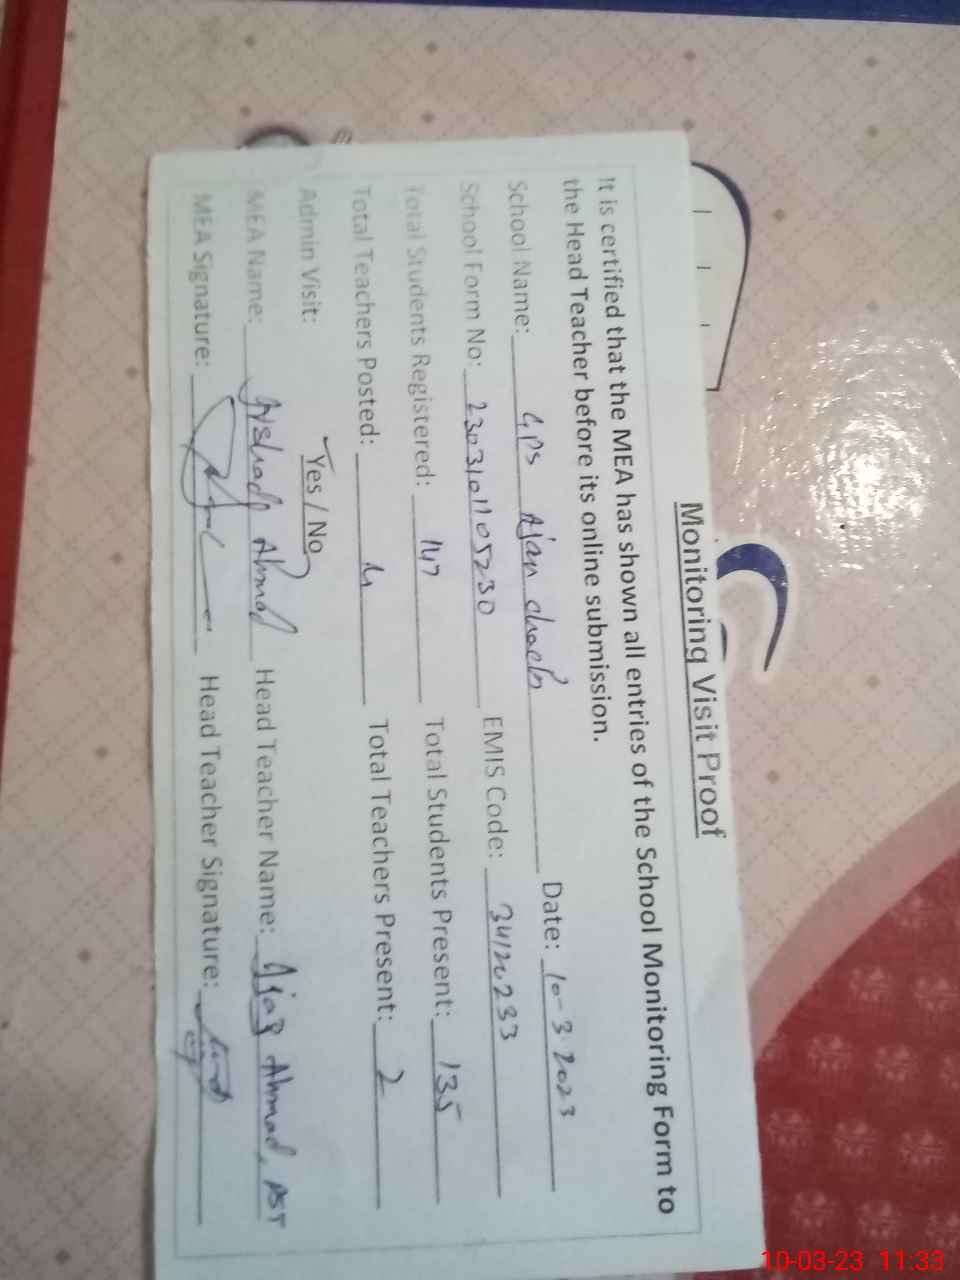 Monitoring Visit Proof
It is certified that the MEA has shown all entries of the School Monitoring Form to
the Head Teacher before its online submission.
School Name: GPS Ajan chack Date: 10-3-2023
School Form No: 2303101105230 EMIS Code: 34120233
Total Students Registered: 147 Total Students Present: 135
Total Teachers Posted: 4 Total Teachers Present: 2
Admin Visit: Yes / No
MEA Name: Arshad Ahmad Head Teacher Name: Ajaz Ahmad, PST
MEA Signature: Head Teacher Signature:
10-03-23 11:33